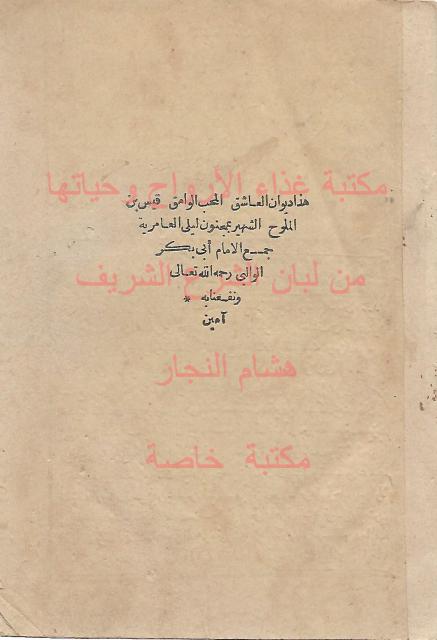 مكتبة غذاء الأرواح وحياتها
هذا ديوان العاشق المحب الوامق قيس بن
الملوح الشهير بمجنون ليلى العامرية
جمع الامام أبى بكر
الوالبي رحمه الله تعالى
من لبان الشرع الشريف
ونفعنا به *
آمين
هشام النجار
مكتبة خاصة